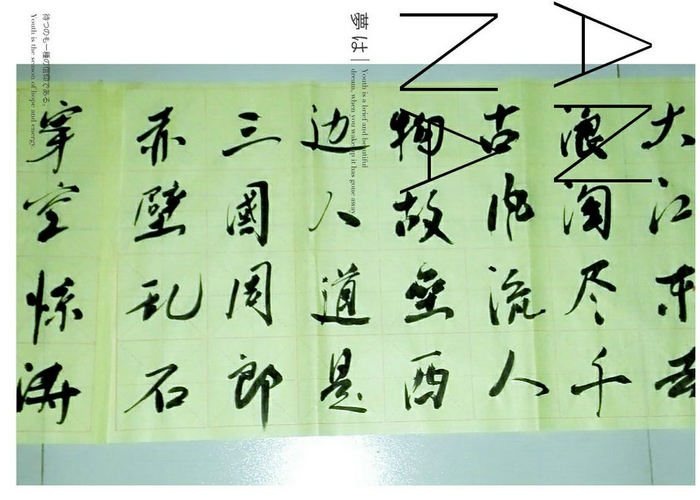 大江东去
浪淘尽千
古风流人
物故垒西
边人道是
三國周郎
赤壁乱石
穿空惊涛
AN
NA
夢は
Youth is a brief and beautiful
dream, when you wake up it has gone away
待つのも一種の信仰である。
Youth is the season of hope and energy.